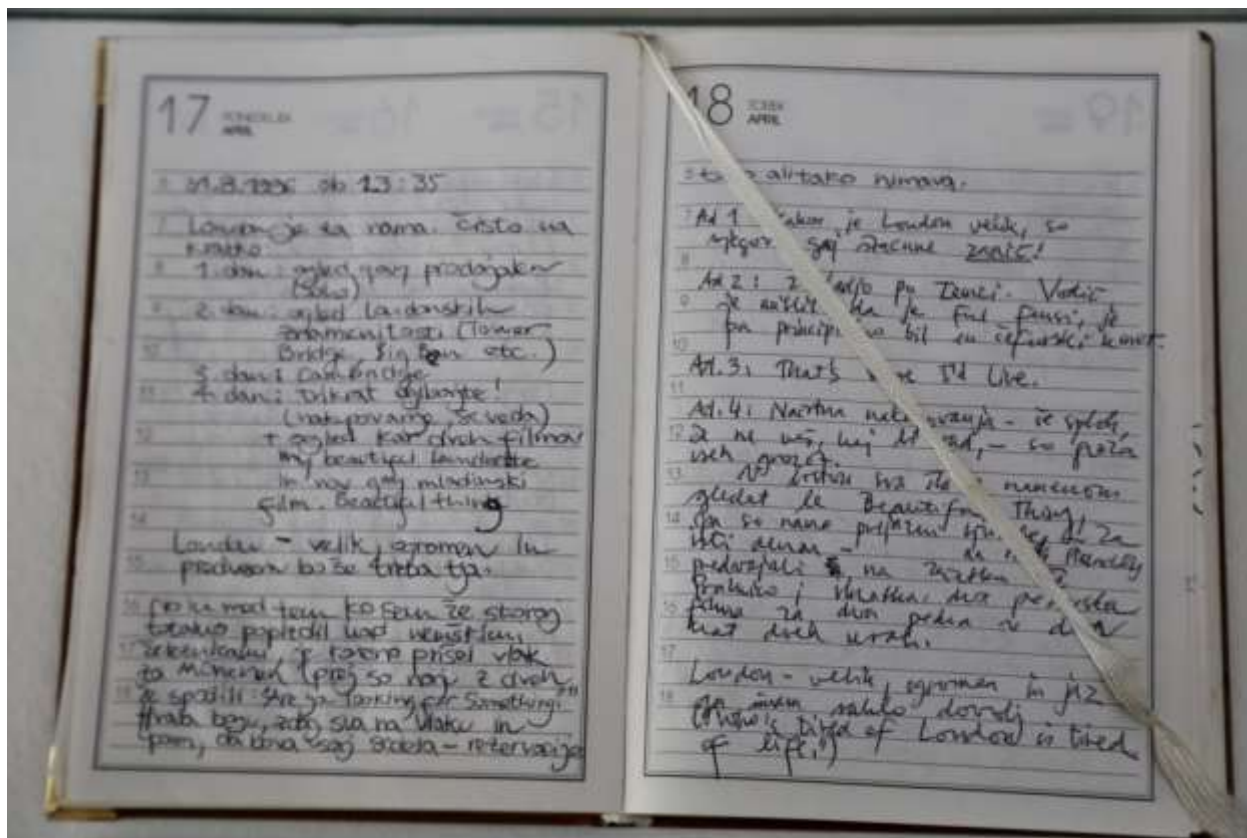 17 PONEDELJEK
APRIL
31.8.1996 ob 13:35
London je za nama. Čisto na
kratko:
1. dan: ogled gay prodajaln
(Soho)
2. dan: ogled londonskih
znamenitosti (Tower
Bridge, Big Ben etc.)
3. dan: Cambridge
4. dan: trikrat ugibajte!
(nakupovanje, seveda)
+ ogled kar dveh filmov
My beautiful laundrette
in nov gay mladinski
film. Beautiful thing
London – velik, ogromen in
predvsem bo še treba tja.
tem ko sem že skoraj
popredil kup nemškim
železničarjem, je prišel vlak
za München (prej so naju z dveh
že spodili: "Are you looking for Something?"
Hvala bogu, zdaj sva na vlaku in
pam, da bova vsaj sedela – rezervacije
18 TOREK
APRIL
ali tako nimava.
Ad 1: je London velik, so
njegovi gay zanič!
Ad 2: z ladjo po Temzi. Vodič
je mislil, da je ful fensi, je
pa bil en čefurski kmet.
Ad. 3: That's where I'd live.
Ad. 4: Načrtna nakupovanja – še sploh,
če ne veš, kaj bi rad, – so
vseh groze.
V bistvu sva šla z namenom
gledat le Beautiful Thing,
pa so nama prijazni za
isti denar –
predvajali na začetku še
Prakuso; skratka: dva pederska
filma za dva pedra v dan
kot dveh urah.
London – velik, ogromen in jaz
ga imam dovolj
(Who's tired of London is tired
of life!)